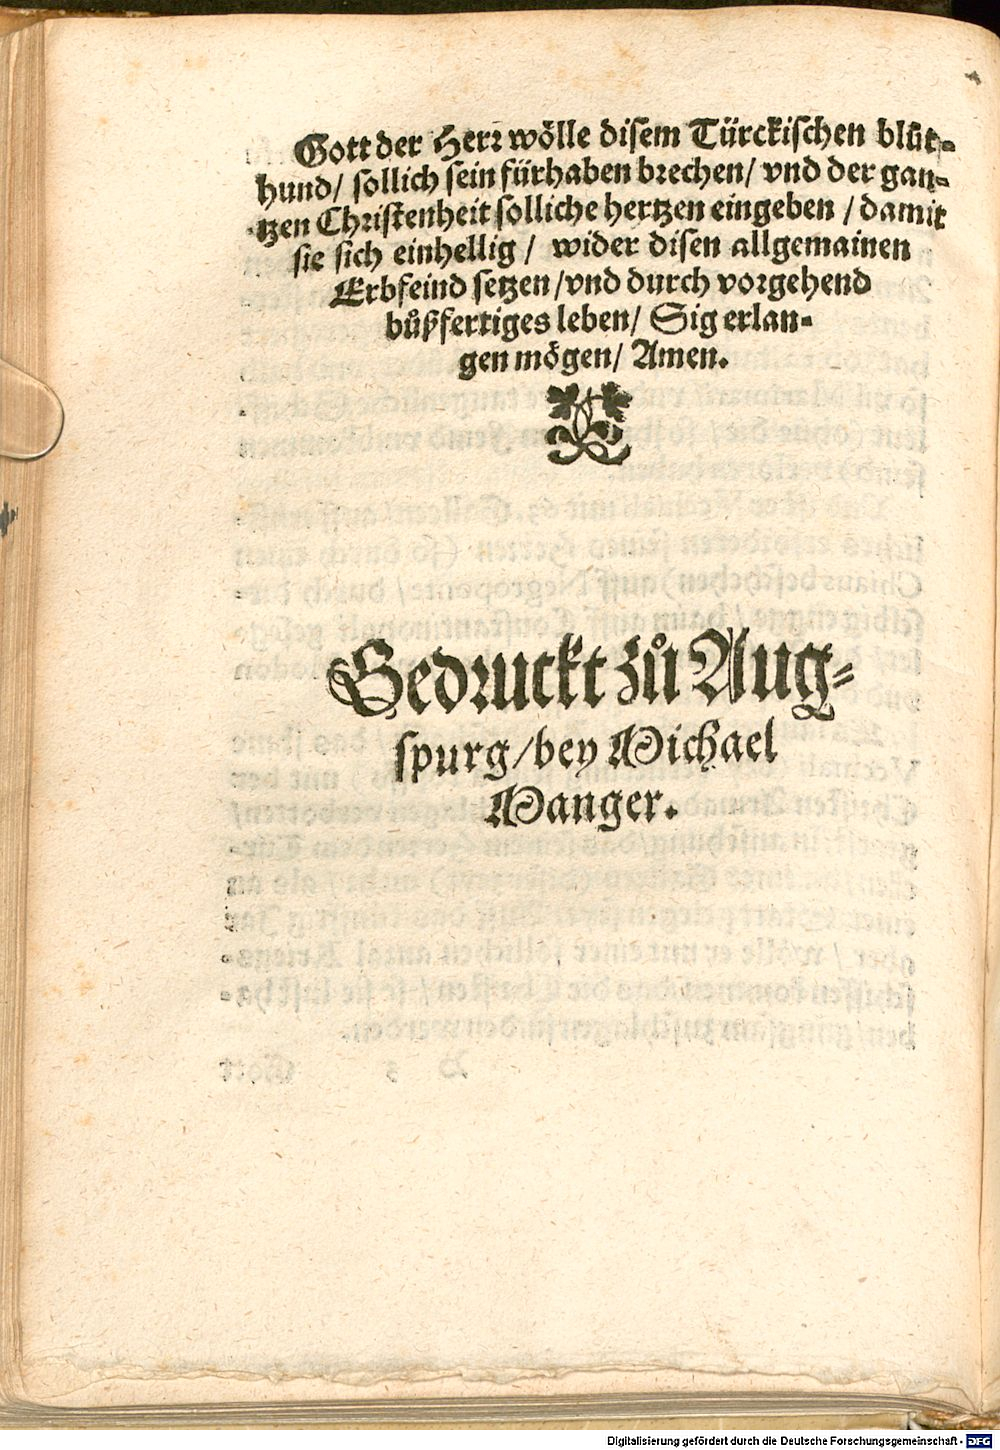 Gott der Herr wölle disem Türckischen blůt-
hund/ sollich sein fürhaben brechen/ vnd der gan-
tzen Christenheit solliche hertzen eingeben / damit
sie sich einhellig / wider disen allgemainen
Erbfeind setzen/vnd durch vorgehend
bůßfertiges leben/ Sig erlan-
gen mögen/ Amen.
Gedruckt zů Aug-
spurg/bey Michael
Manger.
Digitalisierung gefördert durch die Deutsche Forschungsgemeinschaft - DFG